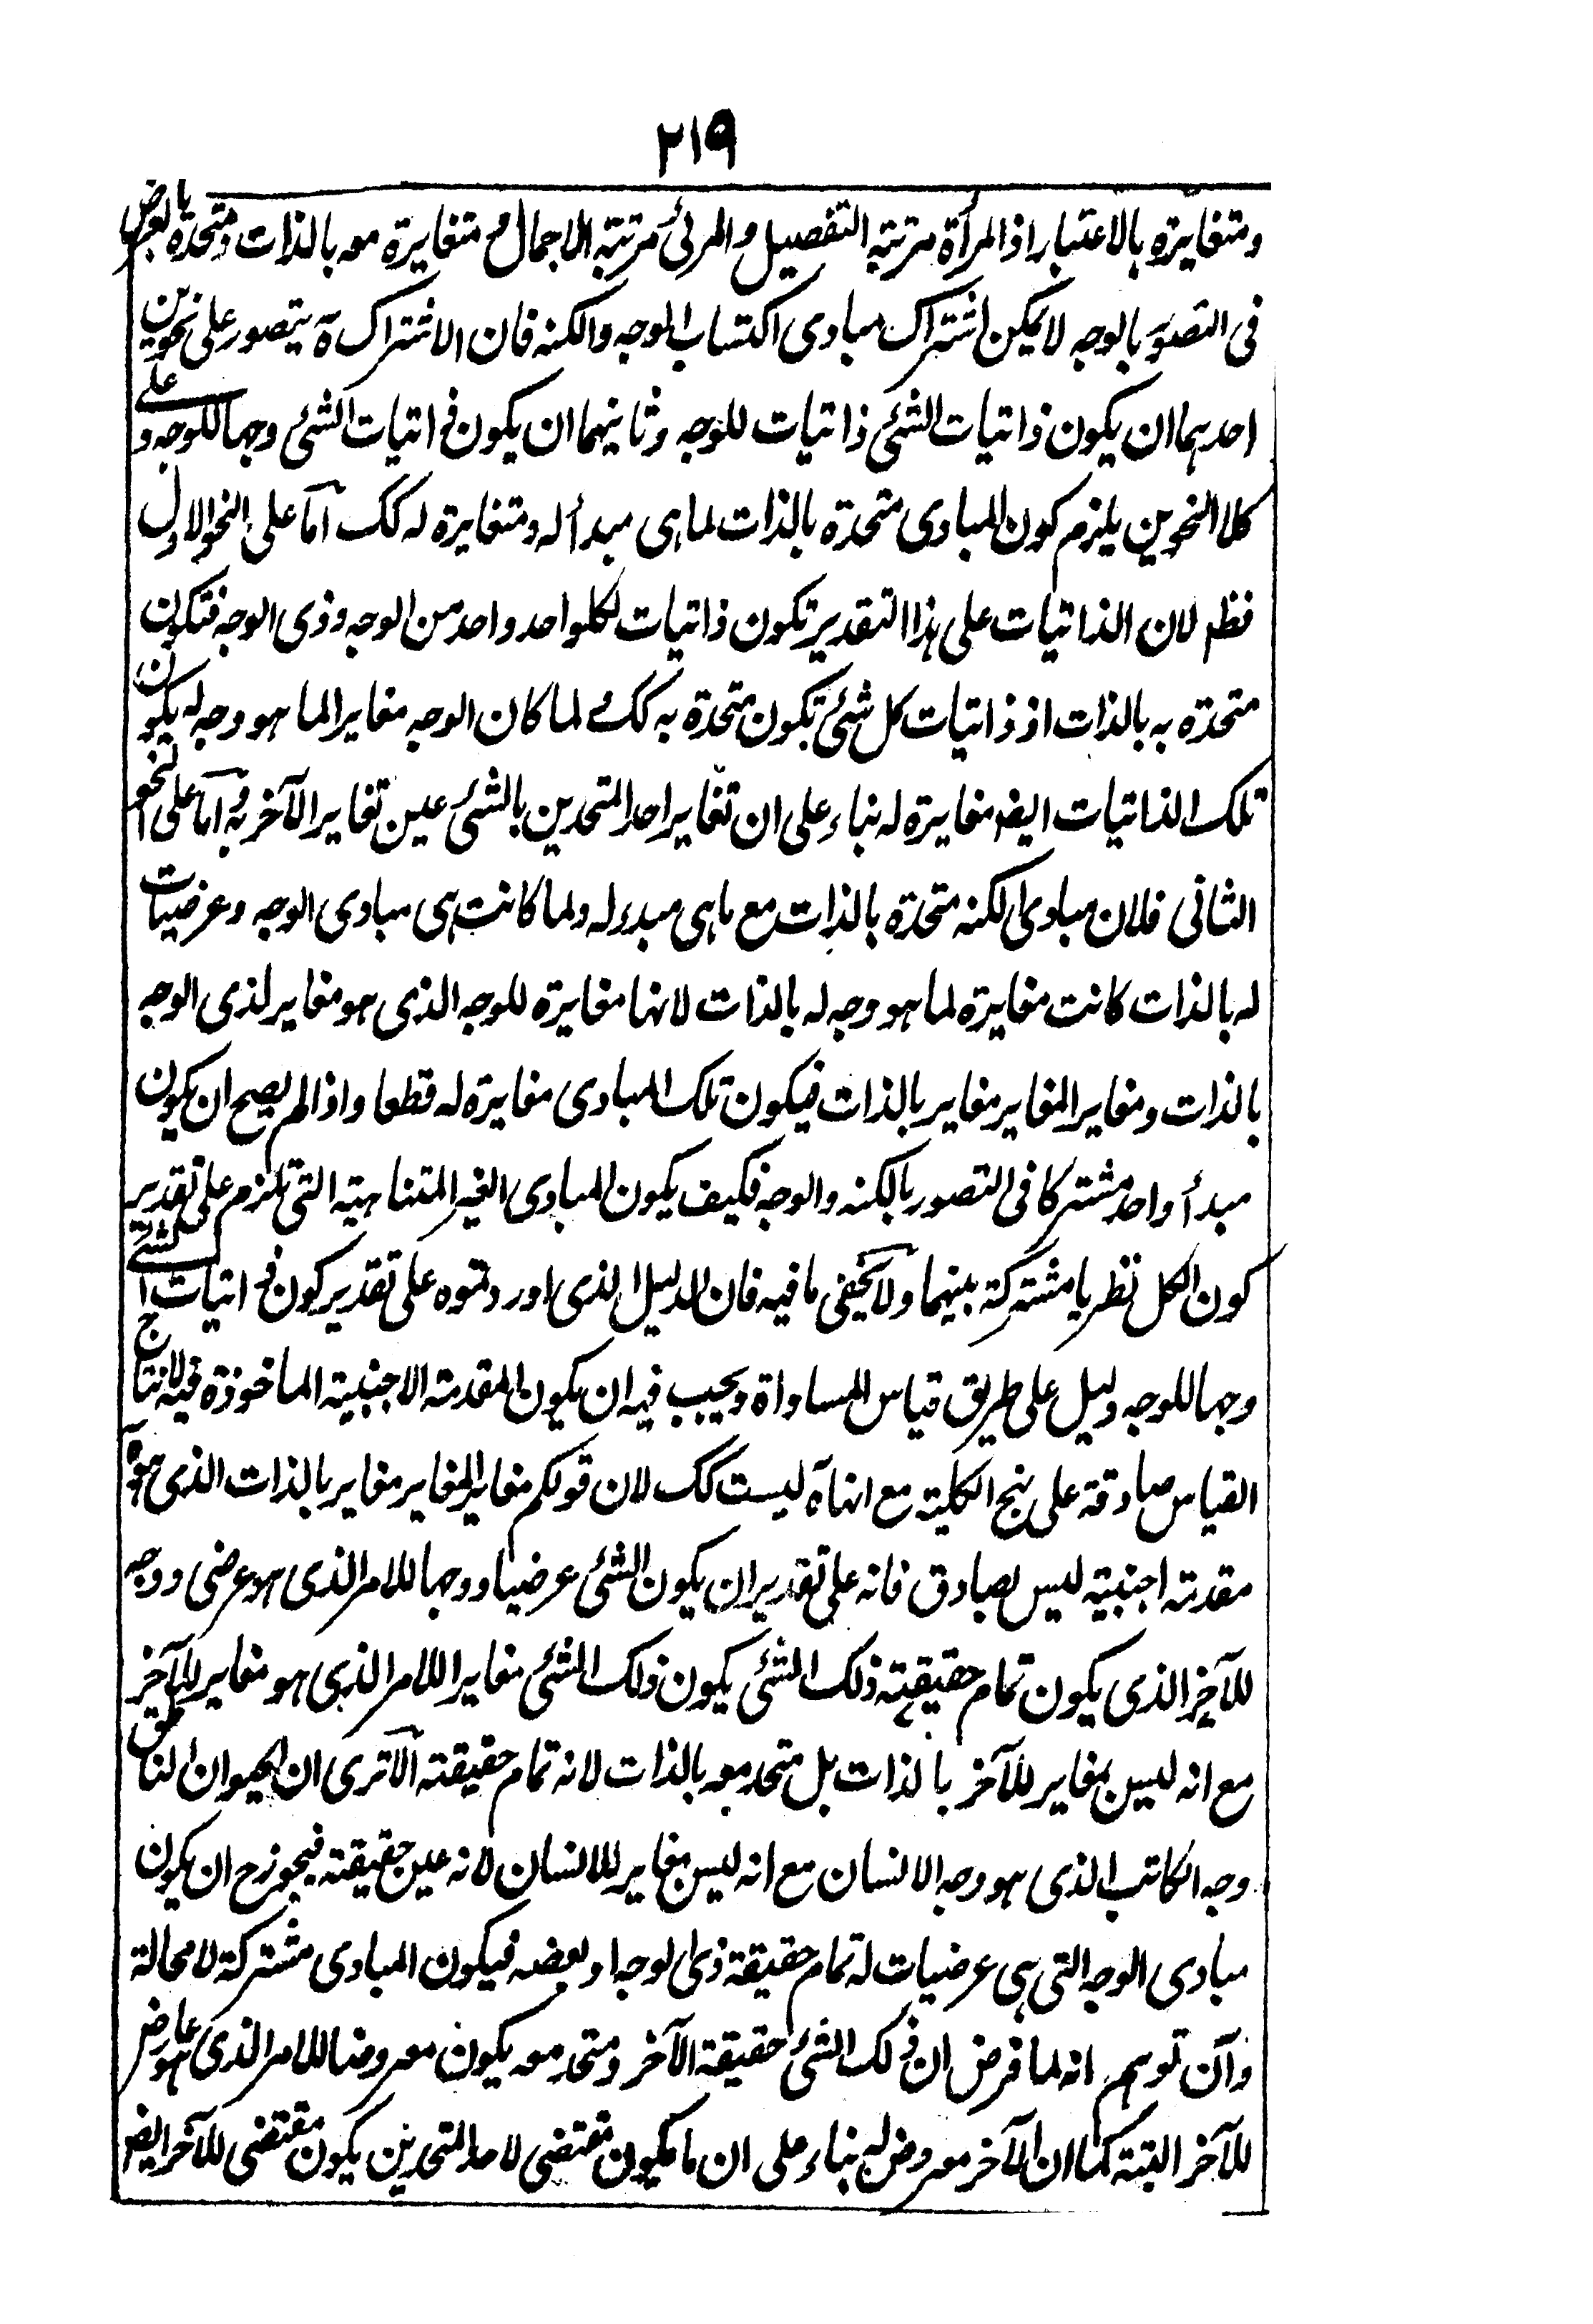 ٢١٩
ومتغايرة بالاعتبار اذ المرأة مرتبة التفصيل والمرئى مرتبة الاجمال و متغايرة معه بالذات ومتحدة بالعرض
فى التصور بالوجه لا يمكن اشتراك مبادى اكتساب الوجه والكنه فان الاشتراك ة يتصور على نحوين
احدهما ان يكون ذاتيات الشئ ذاتيات للوجه وثانيهما ان يكون ذاتيات الشئ وجها للوجه و على
كلا النحوين يلزم كون المبادى متحدة بالذات لما هى مبدأ له ومتغايرة له كك اما على النحو الاول
فظ لان الذاتيات على هذا التقدير تكون ذاتيات لكلواحد واحد من الوجه وذى الوجه فتكون
متحدة به بالذات اذ ذاتيات كل شئ تكون متحدة به كك لما كان الوجه مغايرا لما هو وجه له يكون
تلك الذاتيات ايض مغايرة له بناء على ان تغاير احد المتحدين بالشئ عين تغاير الآخر به واما على النحو
الثانى فلان مبادى الكنه متحدة بالذات مع ما هى مبدء له ولما كانت هى مبادى الوجه وعرضيات
له بالذات كانت مغايرة لما هو وجه له بالذات لانها مغايرة للوجه الذى هو مغاير لذى الوجه
بالذات ومغاير المغاير مغاير بالذات فيكون تلك المبادى مغايرة له قطعا واذا لم يصح ان يكون
مبدأ واحد مشتركا فى التصور بالكنه والوجه فكيف يكون المبادى الغير المتناهية التى تلزم على تقدير
كون الكل نظريا مشتركة بينهما ولا يخفى ما فيه فان الدليل الذى اوردتموه على تقدير كون ذاتيات الشئ
وجها للوجه دليل على طريق قياس المساواة ويجب فيه ان يكون المقدمة الاجنبية الماخوذة فيه لانتاج
القياس صادقة على نهج الكلية مع انها ة ليست كك لان قولكم مغاير المغاير مغاير بالذات الذى هو
مقدمة اجنبية ليس بصادق فانه على تقدير ان يكون الشئ عرضيا ووجها للامر الذى هو عرضى ووجه
للآخر الذى يكون تمام حقيقته ذلك الشئ يكون ذلك الشئ مغايرا للامر الذى هو مغاير للآخر
مع انه ليس بمغاير للآخر بالذات بل متحد معه بالذات لانه تمام حقيقته الا ترى ان الحيوان الناطق
وجه الكاتب الذى هو وجه الانسان مع انه ليس بمغاير للانسان لانه عين حقيقته فيجوز ح ان يكون
مبادى الوجه التى هى عرضيات له تمام حقيقة ذى الوجه او بعضه فيكون المبادى مشتركة لا محالة
وان توهم انه لما فرض ان ذلك الشئ حقيقة الآخر ومتحد معه يكون معروضا للامر الذى هو عارض
للآخر البتة كما ان الآخر معروض له بناء على ان ما يكون مقتضى لاحد المتحدين يكون مقتضى للآخر ايض